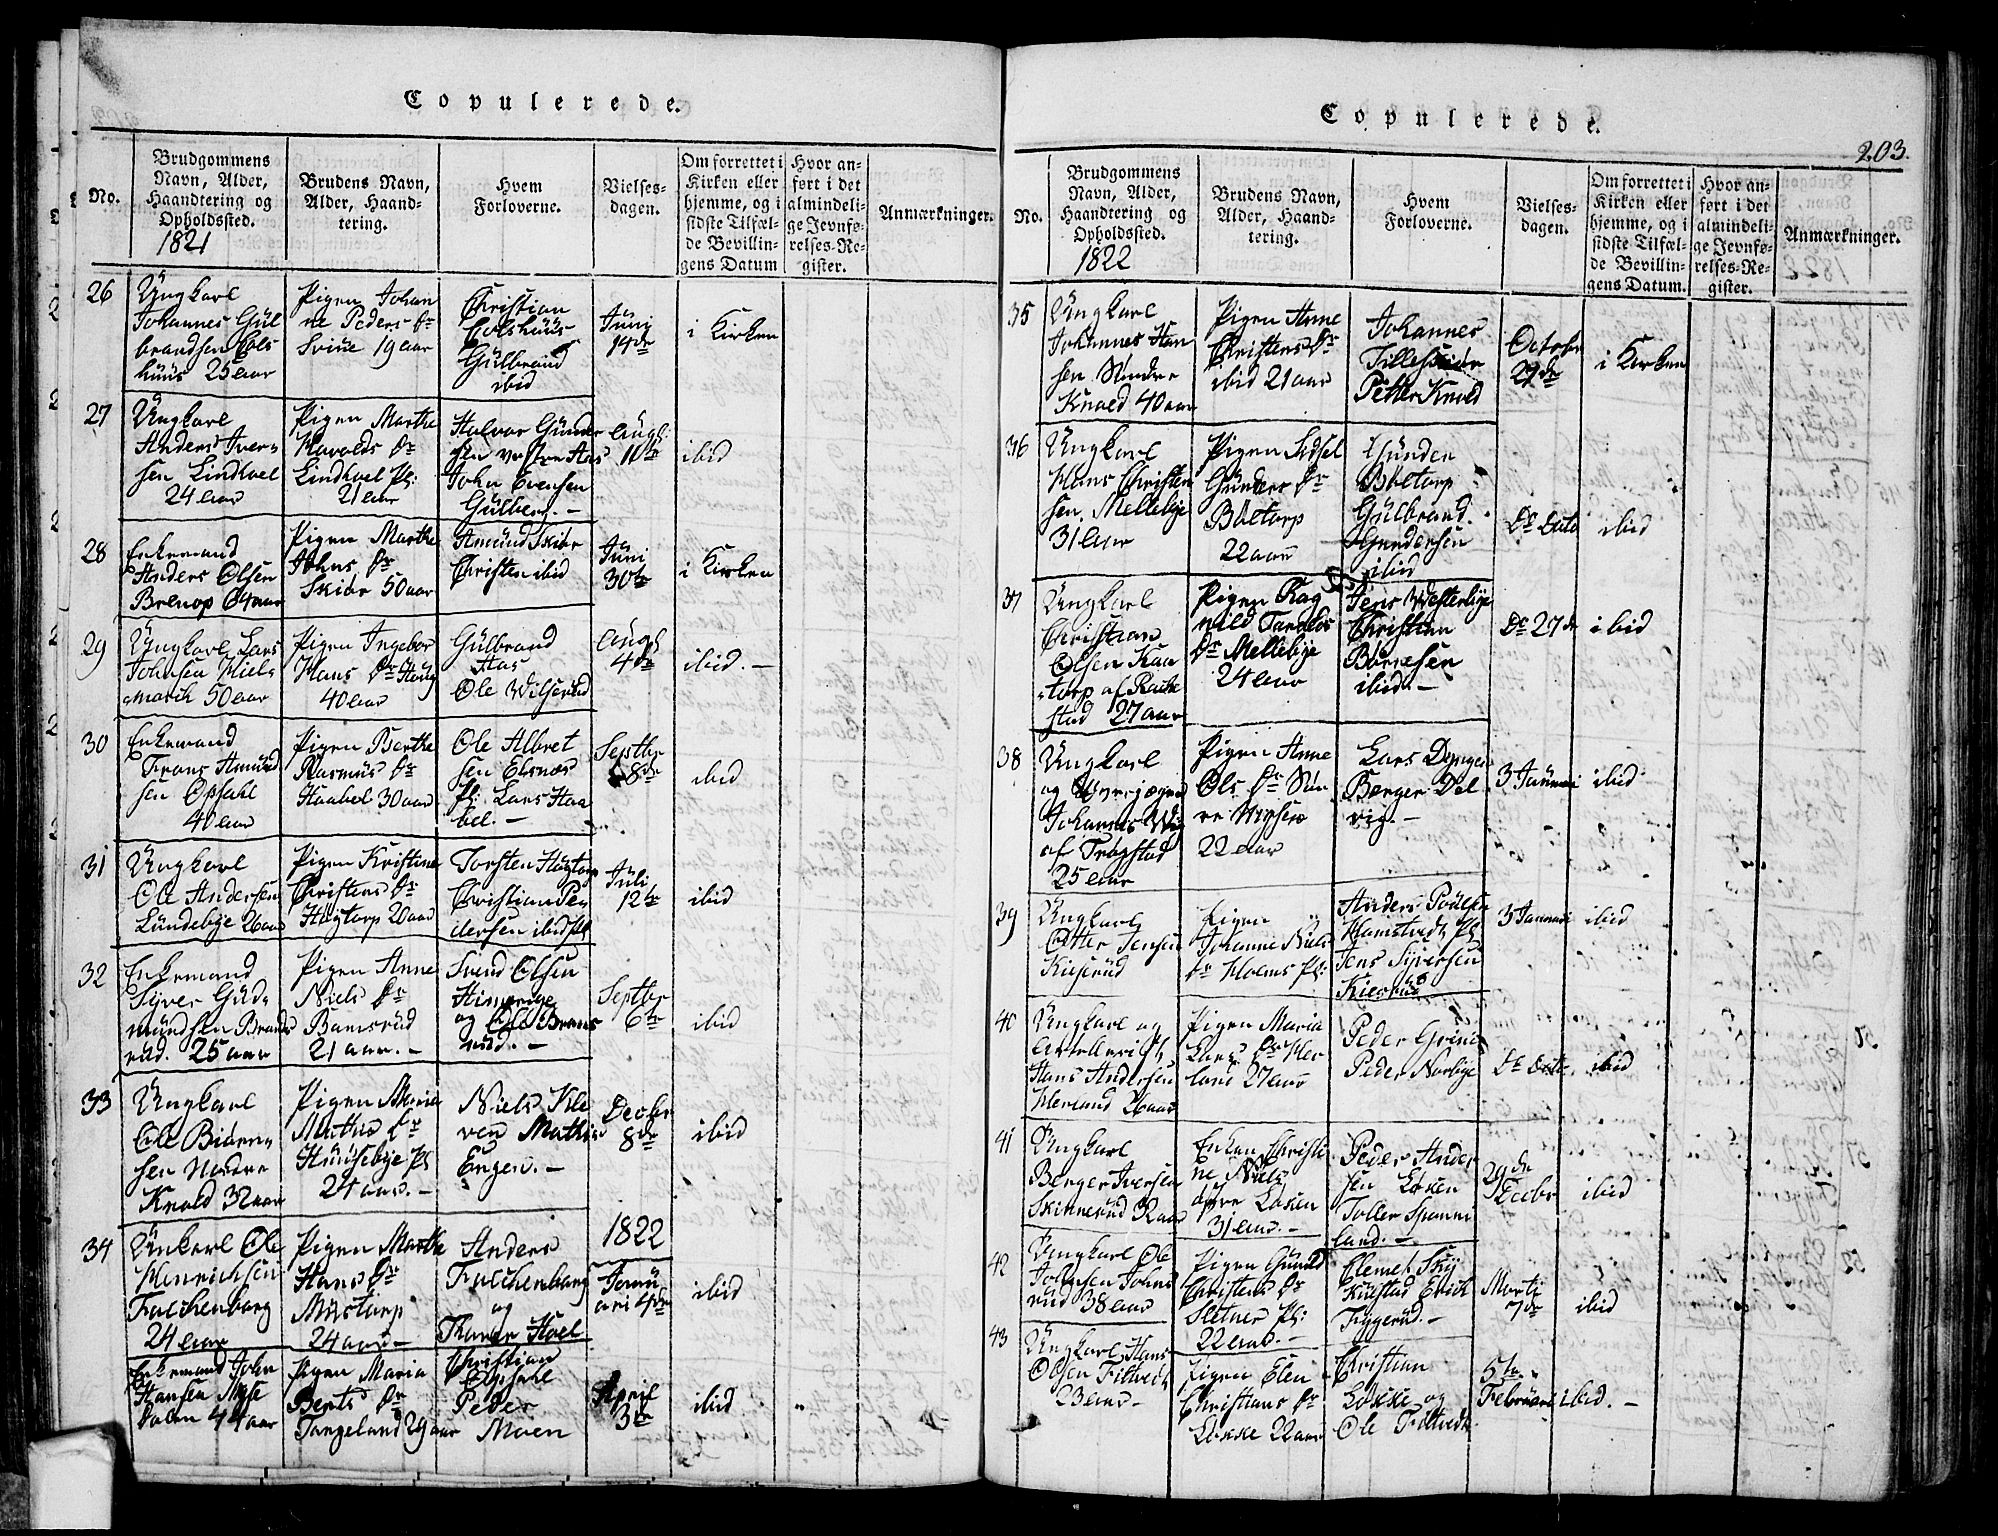 Copulerede.
No.
Brudgommens Navn, Alder, Haandtering og Opholdssted.
Brudens Navn, Alder, Haandtering.
Hvem Forloverne.
Vielsesdagen.
Om forrettet i Kirken eller hjemme, og i sidste Tilfælde Bevillingens Datum
Hvor anført i det almindelige Jevnførelses-Register.
Anmærkninger.
1821
26
Ungkarl
Johannes Gül
brandsen Eols
hüüs 25 aar
Pigen Johan
ne Peders Dr
Sviüe 19 aar
Christian
Eolshüüs
Gülbrand
ibid
Jüni
14de
i Kirken
27
Ungkarl
Anders Iver-
sen Lindhoel
24 aar
Pigen Marthe
Haralds Dr
Lindhoel Pl:
21 aar
Halvor Günder
sen vestre Aas
John Evensen
Gülberg. -
Augs
11te
ibid
28
Enkemand
Anders Olsen
64 aar
Pigen Marthe
Johns Dr
Skiør 50 aar
Amünd Skiør
Christen ibid
Jüni
30te
i Kirken
29
Ungkarl Lars
Johnsen Miels
march 50 aar
Pigen Ingebor
Hans Dr Haüg
40 aar
Gülbrand
Aas
Ole Wilserud
Augs
4de
ibid. -
30
Enkemand
Frans Amünd
sen Opsahl
40 aar
Pigen Berthe
Rasmüs Dr
Haabel 30 aar
Ole Albret
sen Elsnæs
Pl: Lars Haa
bel. -
Septbr
8de
ibid
31
Ungkarl
Ole Andersen
Lündebye 26 aar
Pigen Kristine
Christens Dr
Høytorp 20 aar
Torsten Høytorp
Christian Pe
dersen ibid Pl
Jüli
12te
ibid
32
Enkemand
Syver Güd-
mündsen Brands
rüd. 25 aar
Pigen Anne
Niels Dr
Bamsrüd
21 aar. -
Svend Olsen
og Ole Brans
rüd. -
Septbr
6te
ibid
33
Ungkarl
Ole Biørn-
sen Nordre
Knold 32 aar
Pigen Maria
Mathis Dr
Haüsebye Pl
24 aar. -
Niels Kle
ven Mathis
Engen. -
Decbr
8de
ibid
34
Unkarl Ole
Henrichsen
Falchenborg
24 aar
Pigen Marthe
Hans Dr
Mastorp
24 aar -
Anders
Falchenborg
og
Thomas Hoel
1822
Janü
ari 4de
ibid
Enkemand John
Hansen Myse
44 aar
Pigen Maria
Berts Dr
Tangeland 29 aar
Christian
Opsahl
Peder
Moen
April
3de
ibid
Copulerede.
203.
No.
Brudgommens Navn, Alder, Haandtering og Opholdssted.
Brudens Navn, Alder, Haandtering.
Hvem Forloverne.
Vielsesdagen.
Om forrettet i Kirken eller hjemme, og i sidste Tilfælde Bevillingens Datum.
Hvor anført i det almindelige Jevnførelses-Register.
Anmærkninger.
1822
35
Ungkarl
Johannes Han
sen Nordre
Knold 40 aar
Pigen Anne
Christens Dr
ibid 21 aar
Johannes
Petter Knold
October
29de
i Kirken
36
Ungkarl
Hans Christen
sen Mellebye
31 aar
Pigen Sidsel
Günders Dr
Bøetorp
22 aar
Günder
Bøetorp
Gülbrand
Gundersen
ibid
Do Dato
ibid
37
Ungkarl
Christian
Olsen Kaa
torp af Rack
stad 27 aar
Pigen Rag
nild Taralds
Dr Mellebye
24 aar
Jens Westerbye
Christian
Børresen
ibid. -
Do 27de
ibid
38
Ungkarl
Johannes
af Trøgstad
25 aar
Pigen Anne
Ols Dr
22 aar
Lars
Berger Del
vig. -
3 Januari
ibid
39
Ungkarl
Otter Jensen
Kieserüd
Pigen
Johanne Niels
Dr Holms Pl:
Anders Poülsen
Hamstvedt Pl
Jens Syversen
Kieserüd
3 Januari
ibid
40
Ungkarl og
Artellerist
Hans Andersen
Herland 26 aar
Pigen Maria
Lars Dr Her
land 27 aar
Peder Grini
Peder Norbye
Do Dato
ibid
41
Ungkarl
Berger Iversen
Skinnerüd 32 aar
Enken Christi
ne Niels
Løken
31 aar. -
Peder Ander
sen Løken
Toller Spønni
land. -
29de
Decbr
ibid
42
Ungkarl Ole
Johnsen Johns
rüd 38 aar
Pigen Günild
Christens Dr
Sletner Pl:
22 aar. -
Clemet Sky
Külstad Erick
Tyggerüd. -
Marti
7de
ibid
43
Ungkarl Hans
Olsen Filtvedt
23 aar -
Pigen Elen
Christians Dr
Løkke 22 aar
Christian
Løkke og
Ole Filtvedt
5te
Februari
ibid. -